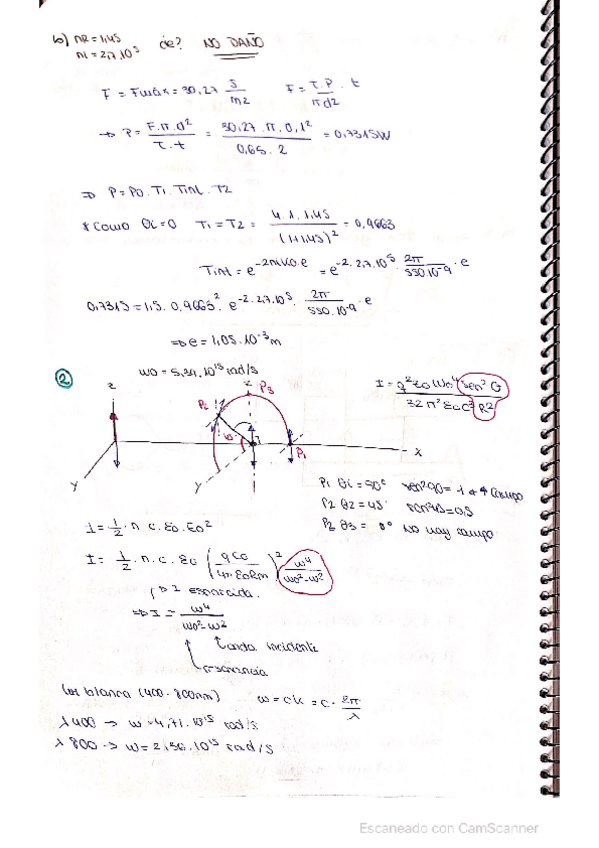 b) nR = 1,45
nI = 2,7.10⁻³ ¿e? NO DAÑO
F = Fmáx = 30,27 J/m2 F = τ.P/πd2 . t
⇒ P = F.π.d²/τ.t = 30,27.π.0,1²/0,65.2 = 0,7315W
⇒ P = P0.T1.Tint.T2
* Como θi=0 T1=T2 = 4.1.1,45/(1+1,45)² = 0,9663
Tint = e^-2nIk0.e = e^-2.2,7.10⁵.2π/550.10⁻⁹.e
0,7315 = 1,5.0,9663².e^-2.2,7.10⁵.2π/550.10⁻⁹.e
⇒ e = 1,05.10⁻³ m
② w0 = 5,34.10¹⁵ rad/s
z P2 z P3 I = q²z0w0⁴ sen²θ/32π²ε0c³R²
x
y y P1
P1 θ1 = 90° sen²90 = 1
P2 θ2 = 45° sen²45 = 0,5
P3 θ3 = 0° No hay campo
i = 1/2 . n . c . ε0 . E0²
I = 1/2 . n . c . ε0 w⁴/w0²-w²
I esparcida.
⇒ I = w⁴/w0²-w²
onda incidente
resonancia
luz blanca (400-800nm) w = ck = c . 2π/λ
λ400 → w=4,71.10¹⁵ rad/s
λ800 → w=2,36.10¹⁵ rad/s
Escaneado con CamScanner